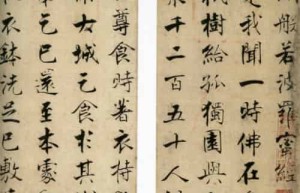 般若波羅蜜經
是我聞一時佛在
祇樹給孤獨園與
千二百五十人
尊食時著衣持
大城乞食於其
乞已還至本處
衣鉢洗足已敷